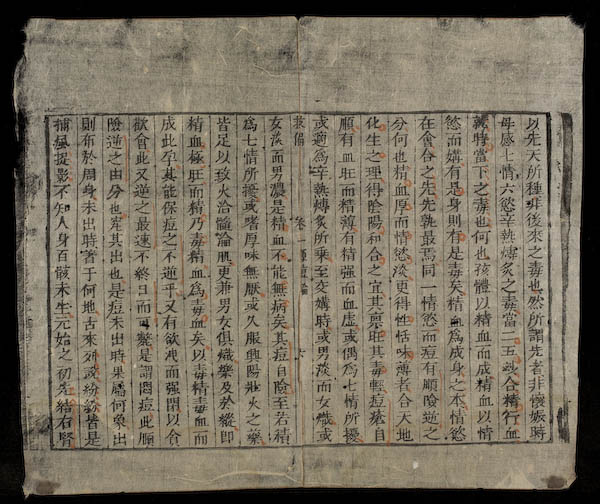 以先天所種非後來之毒也然所謂先者非懷娠時
母感七情六慾辛熱燖炙之毒當二五妙合精行血
就時當下之毒也何也孩體以精血而成精血以情
慾而媾有是身則有是毒矣精血爲成身之本情慾
在會合之先先孰最焉同一情慾而痘有順險逆之
分何也精血厚而情慾淡更得性恬味薄者合天地
化生之理得陰陽和合之宜其氣旺其毒輕痘瘡自
順有血旺而精薄有精强而血虛或偶爲七情所擾
或適爲辛熱燖炙所乘至交媾時或男淡而女熾或
救偏 卷一 論 六
女淡而男濃是精血不能無病矣其痘自險至若積
爲七情所擾或嗜厚味無厭或久服興陽壯火之藥
皆足以致火洽髓淪肌更兼男女俱熾樂及於縱即
精血極旺而精乃毒精血爲毒血矣以毒精毒血而
成此孕其能保痘之不逆乎又有欲洩而强閉以貪
歡會此又逆之最速不終日而可斃是謂悶痘此順
險逆之由分也其出也是痘未出時果屬何象出
則布於周身未出時著于何地古來列說紛紛皆是
捕風捉影不知人身百骸未生元始之初先結有腎